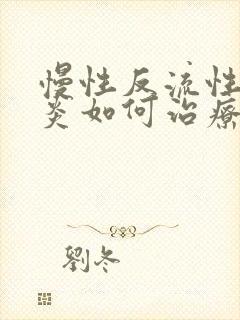 慢性反流性
炎如何治療
劉冬